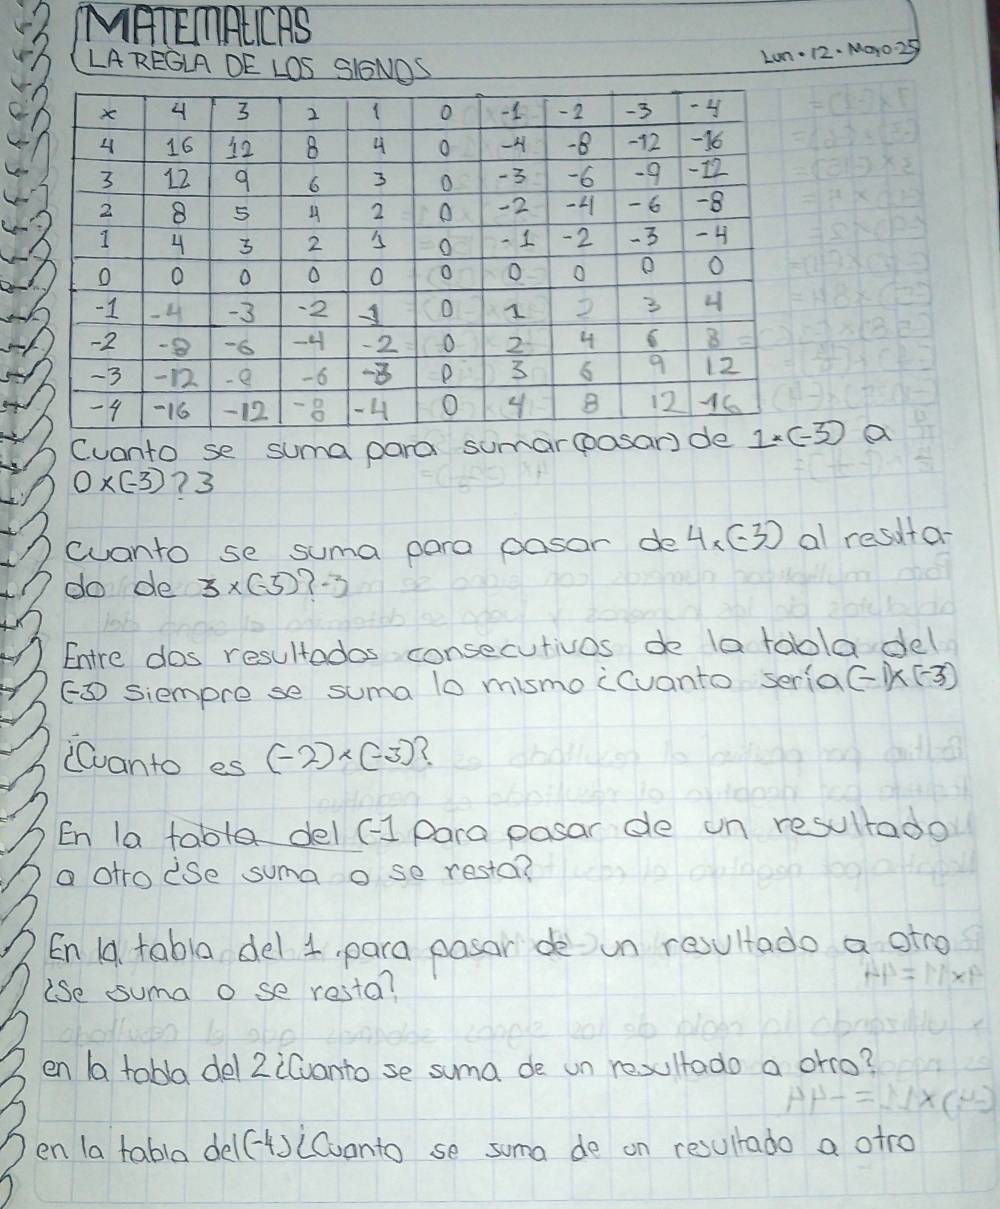 MATEMATICAS
LA REGLA DE LOS SIGNOS
Lun•12•Mayo•25
x 4 3 2 1 0 -1 -2 -3 -4
4 16 12 8 4 0 -4 -8 -12 -16
3 12 9 6 3 0 -3 -6 -9 -12
2 8 5 4 2 0 -2 -4 -6 -8
1 4 3 2 1 0 -1 -2 -3 -4
0 0 0 0 0 0 0 0 0 0
-1 -4 -3 -2 -1 0 1 2 3 4
-2 -8 -6 -4 -2 0 2 4 6 8
-3 -12 -9 -6 -3 0 3 6 9 12
-4 -16 -12 -8 -4 0 4 8 12 16
Cuanto se suma para sumar(pasar) de 1×(-3) a
0×(-3)? 3
cuanto se suma para pasar de 4×(-3) al resulta-
do de 3×(-3)? -3
Entre dos resultados consecutivos de la tabla del
(-3) siempre se suma lo mismo ¿Cuanto sería (-1)×(-3)
¿Cuanto es (-2)×(-3)?
En la tabla del (-1 Para pasar de un resultado
a otro ¿Se suma o se resta?
En la tabla del 1 para pasar de un resultado a otro
¿Se suma o se resta?
en la tabla del 2 ¿Cuanto se suma de un resultado a otro?
en la tabla del (-4) ¿Cuanto se suma de un resultado a otro